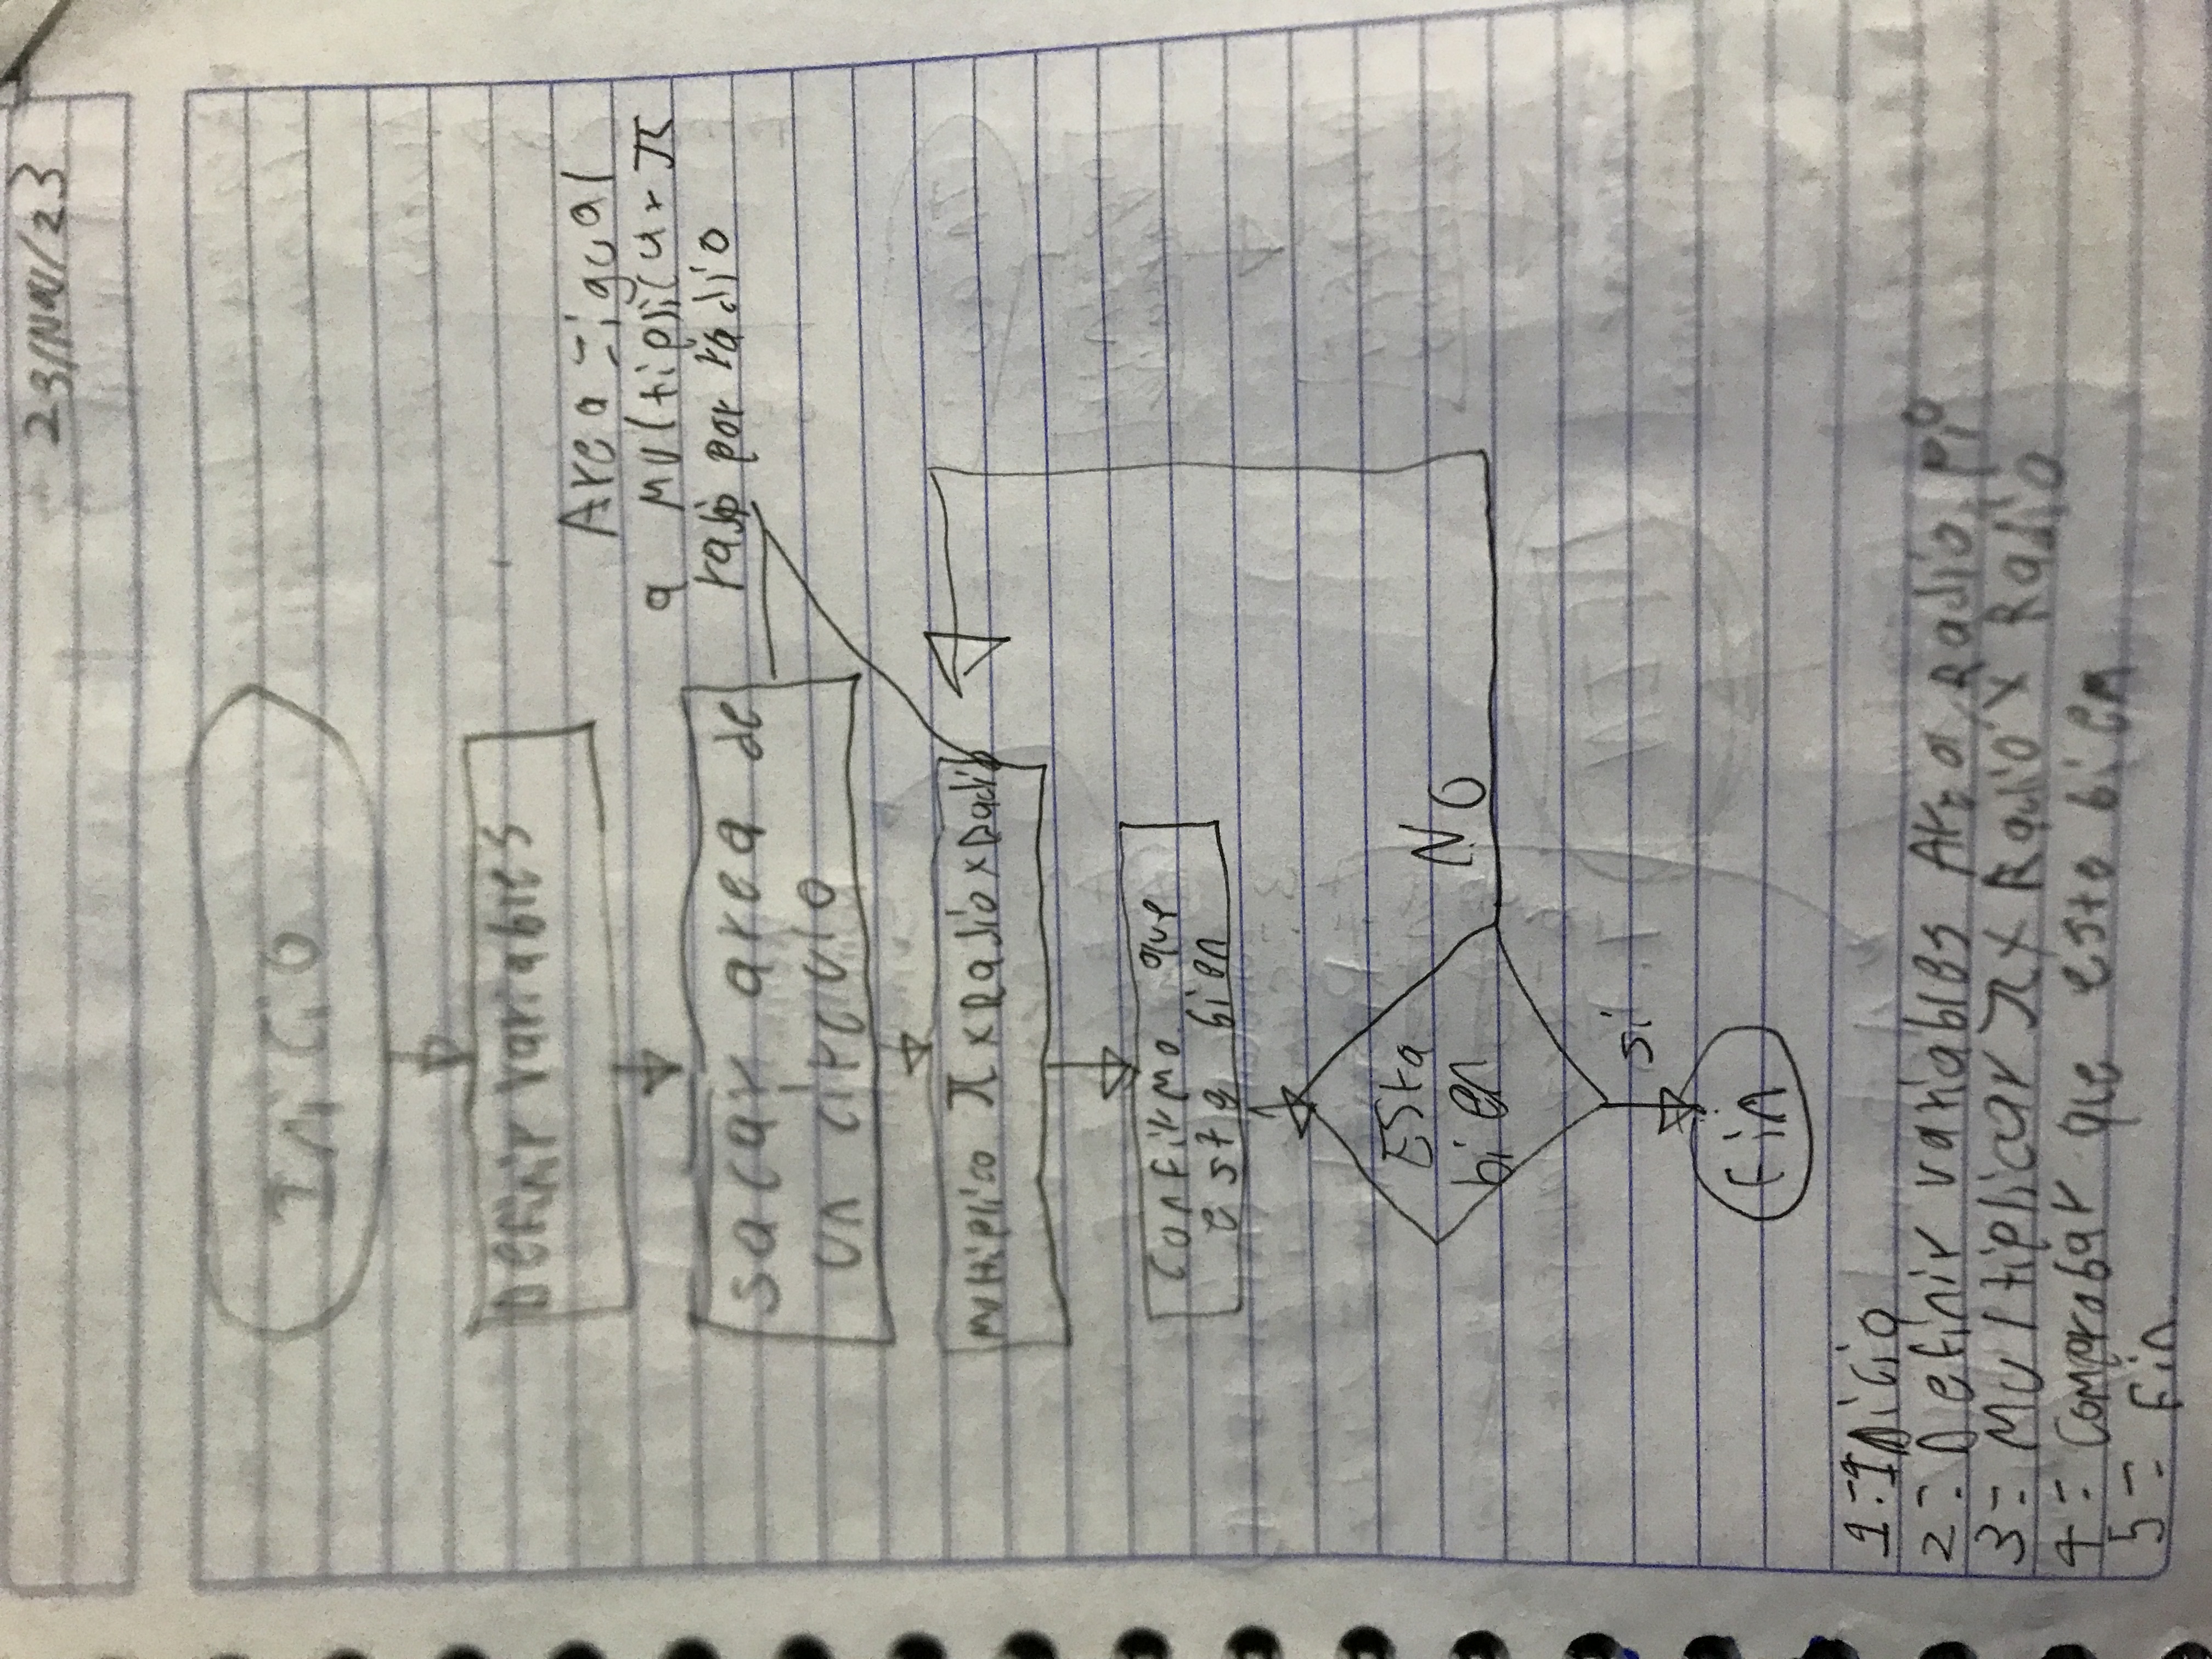 Inicio
Definir variables
sacar area de
un circulo
Area = igual
a multiplicar π
radio por radio
multiplico π x Radio x Radio
Confirmo que
este bien
Esta
bien
NO
si
fin
1-: Inicio
2-: Definir variables Area, Radio, Pi
3-: Multiplicar π x Radio x Radio
4-: Comprobar que este bien
5-: fin